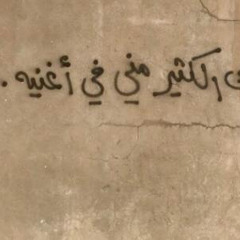 الكثير مني في أغنيه .